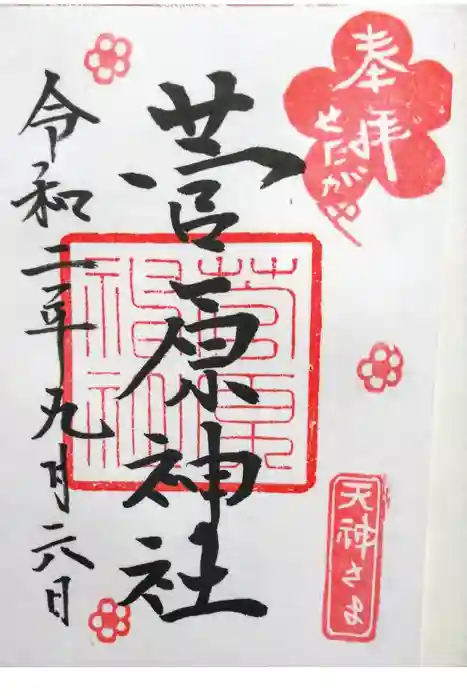 奉拝
せたがや
菅原神社
菅原
神社
天神さま
令和二年九月六日